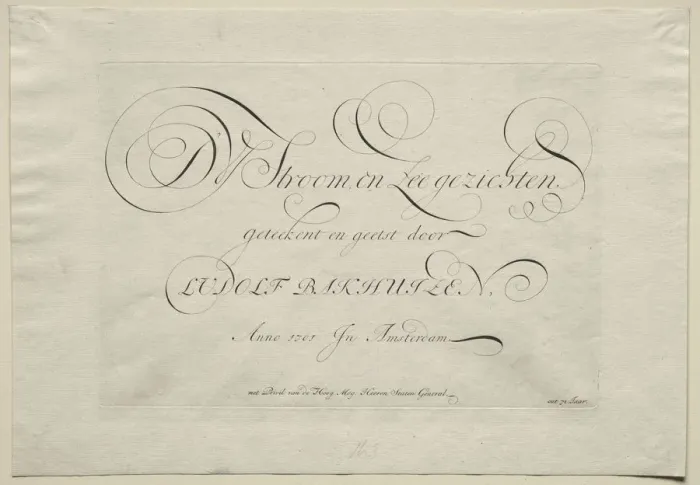 D'Y Stroom, en Zee gezichten
geteekent en geetst door
LUDOLF BAKHUIZEN,
Anno 1701 In Amsterdam
met Privil. van de Hoog. Mog. Heeren Staten Generael.
aet. 71 Jaar.